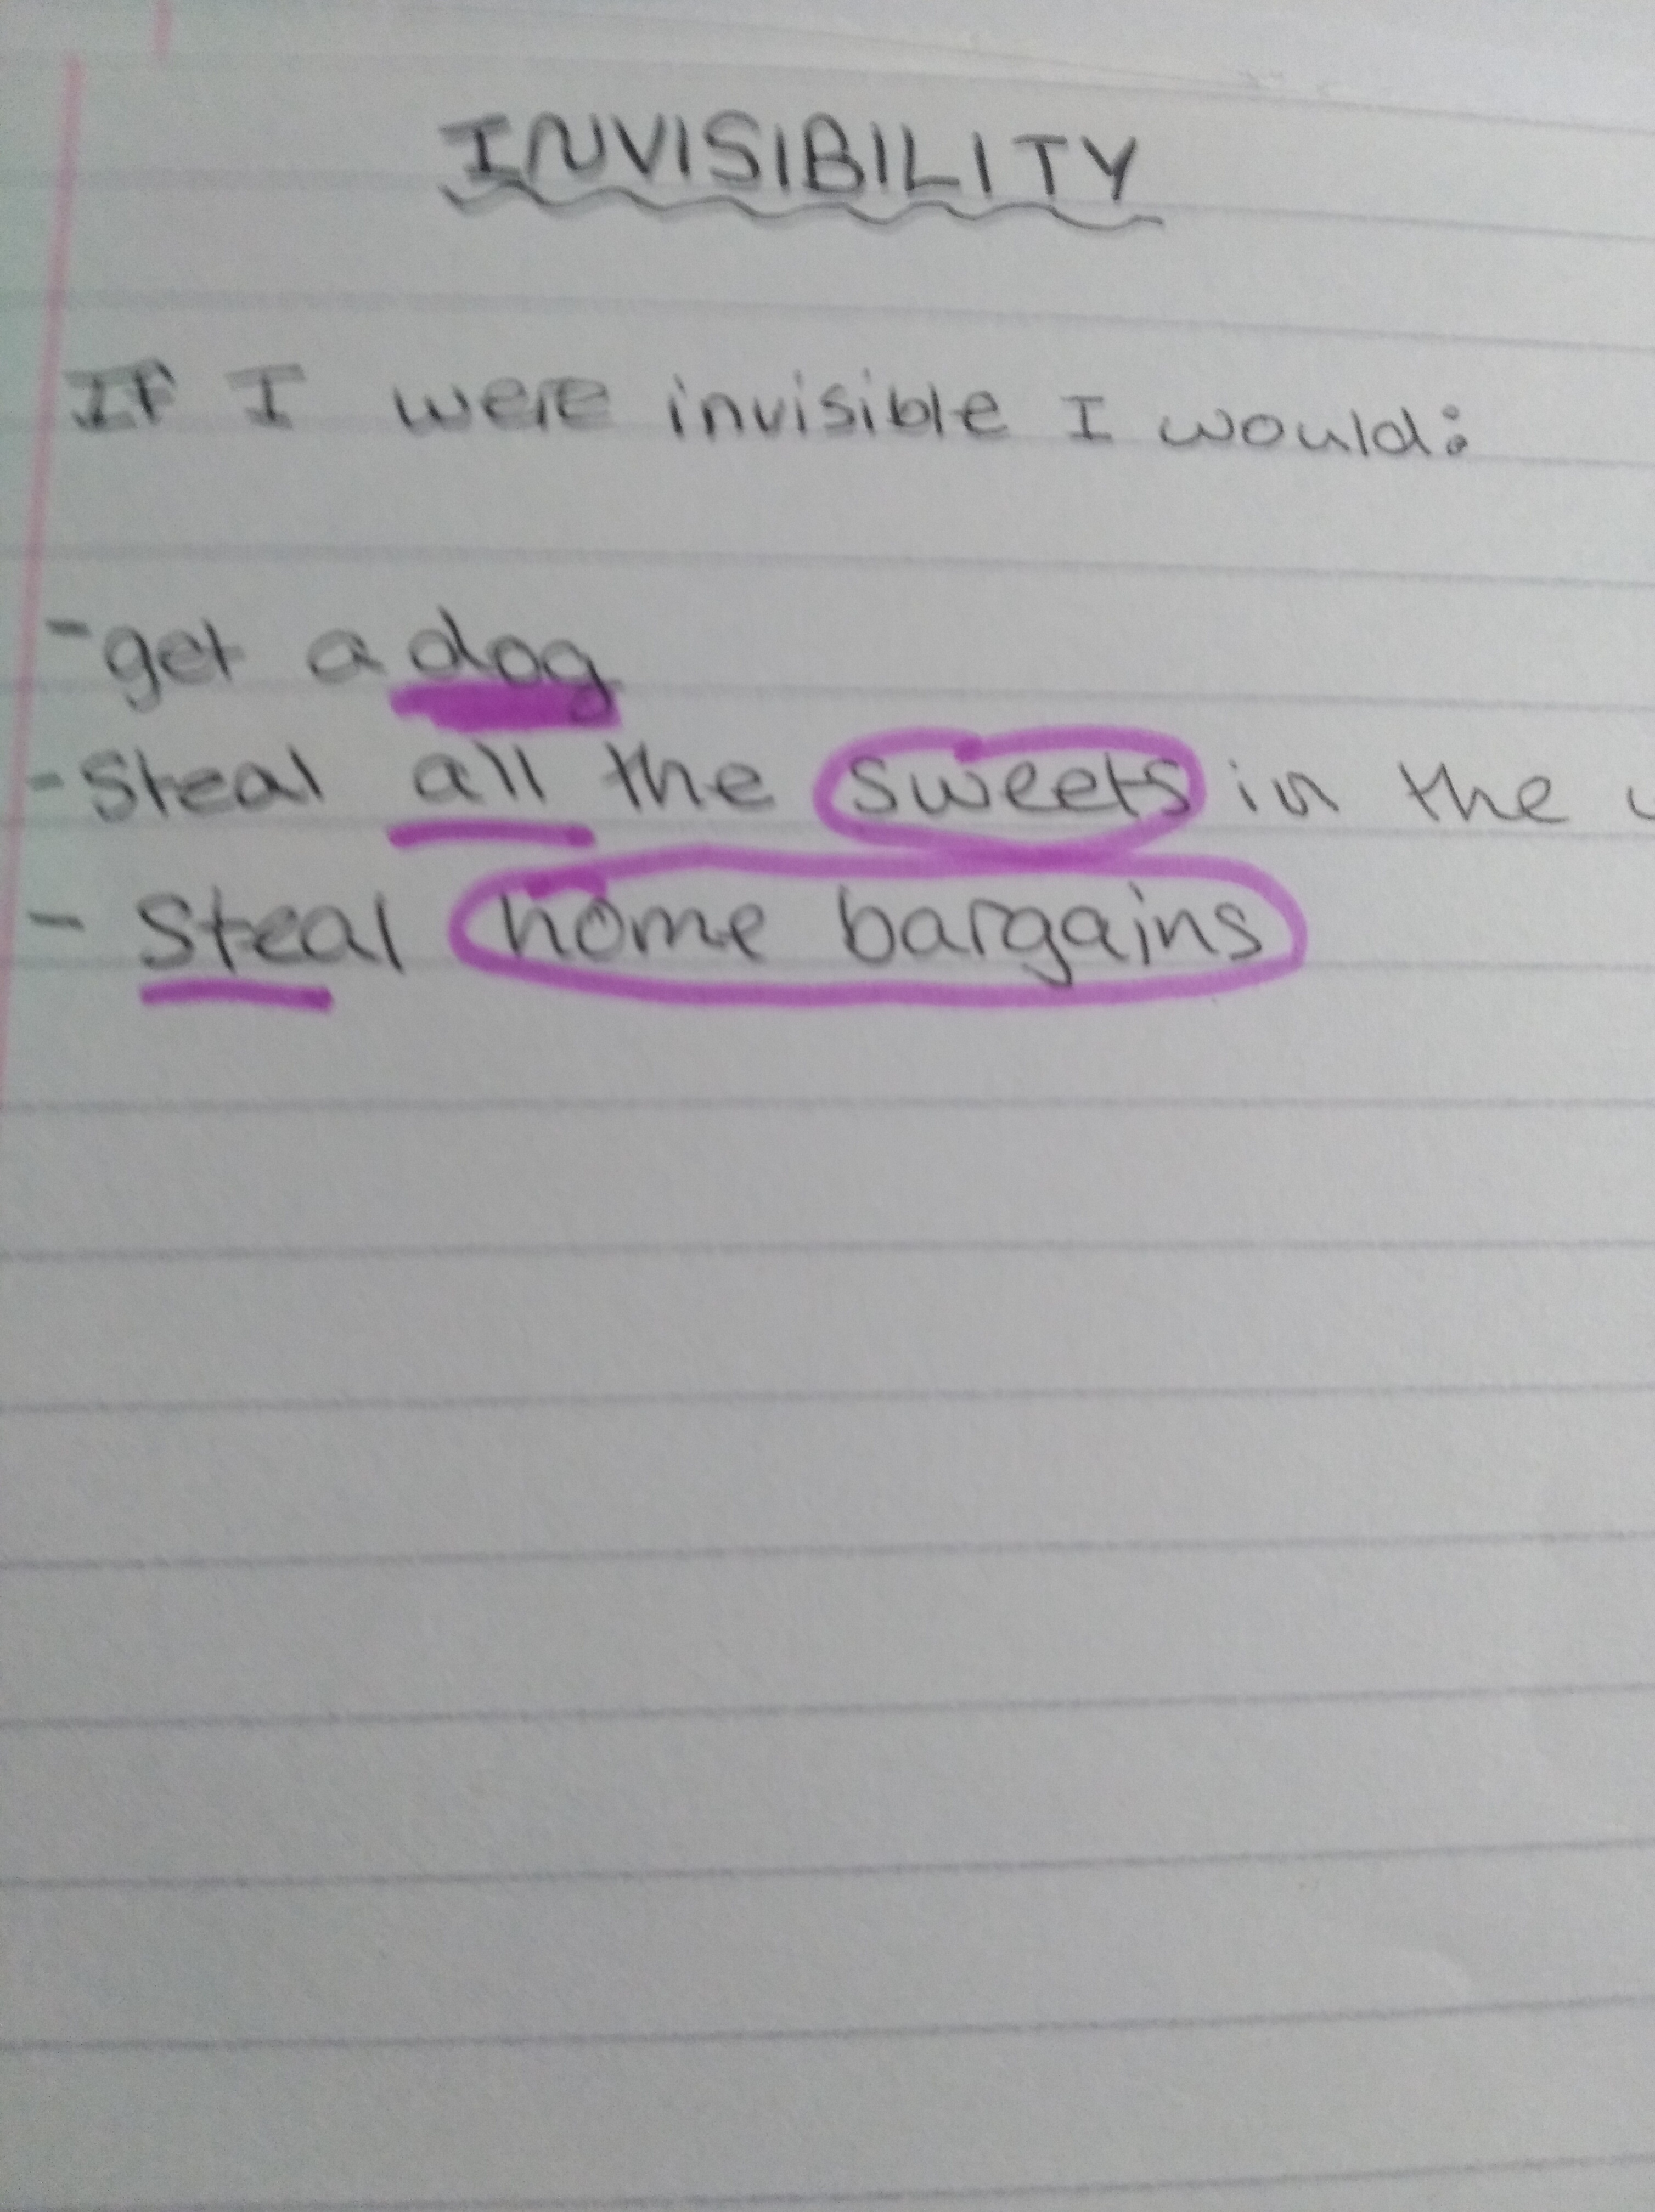 INVISIBILITY
If I were invisible I would:
-get a dog
-Steal all the sweets in the
- Steal home bargains